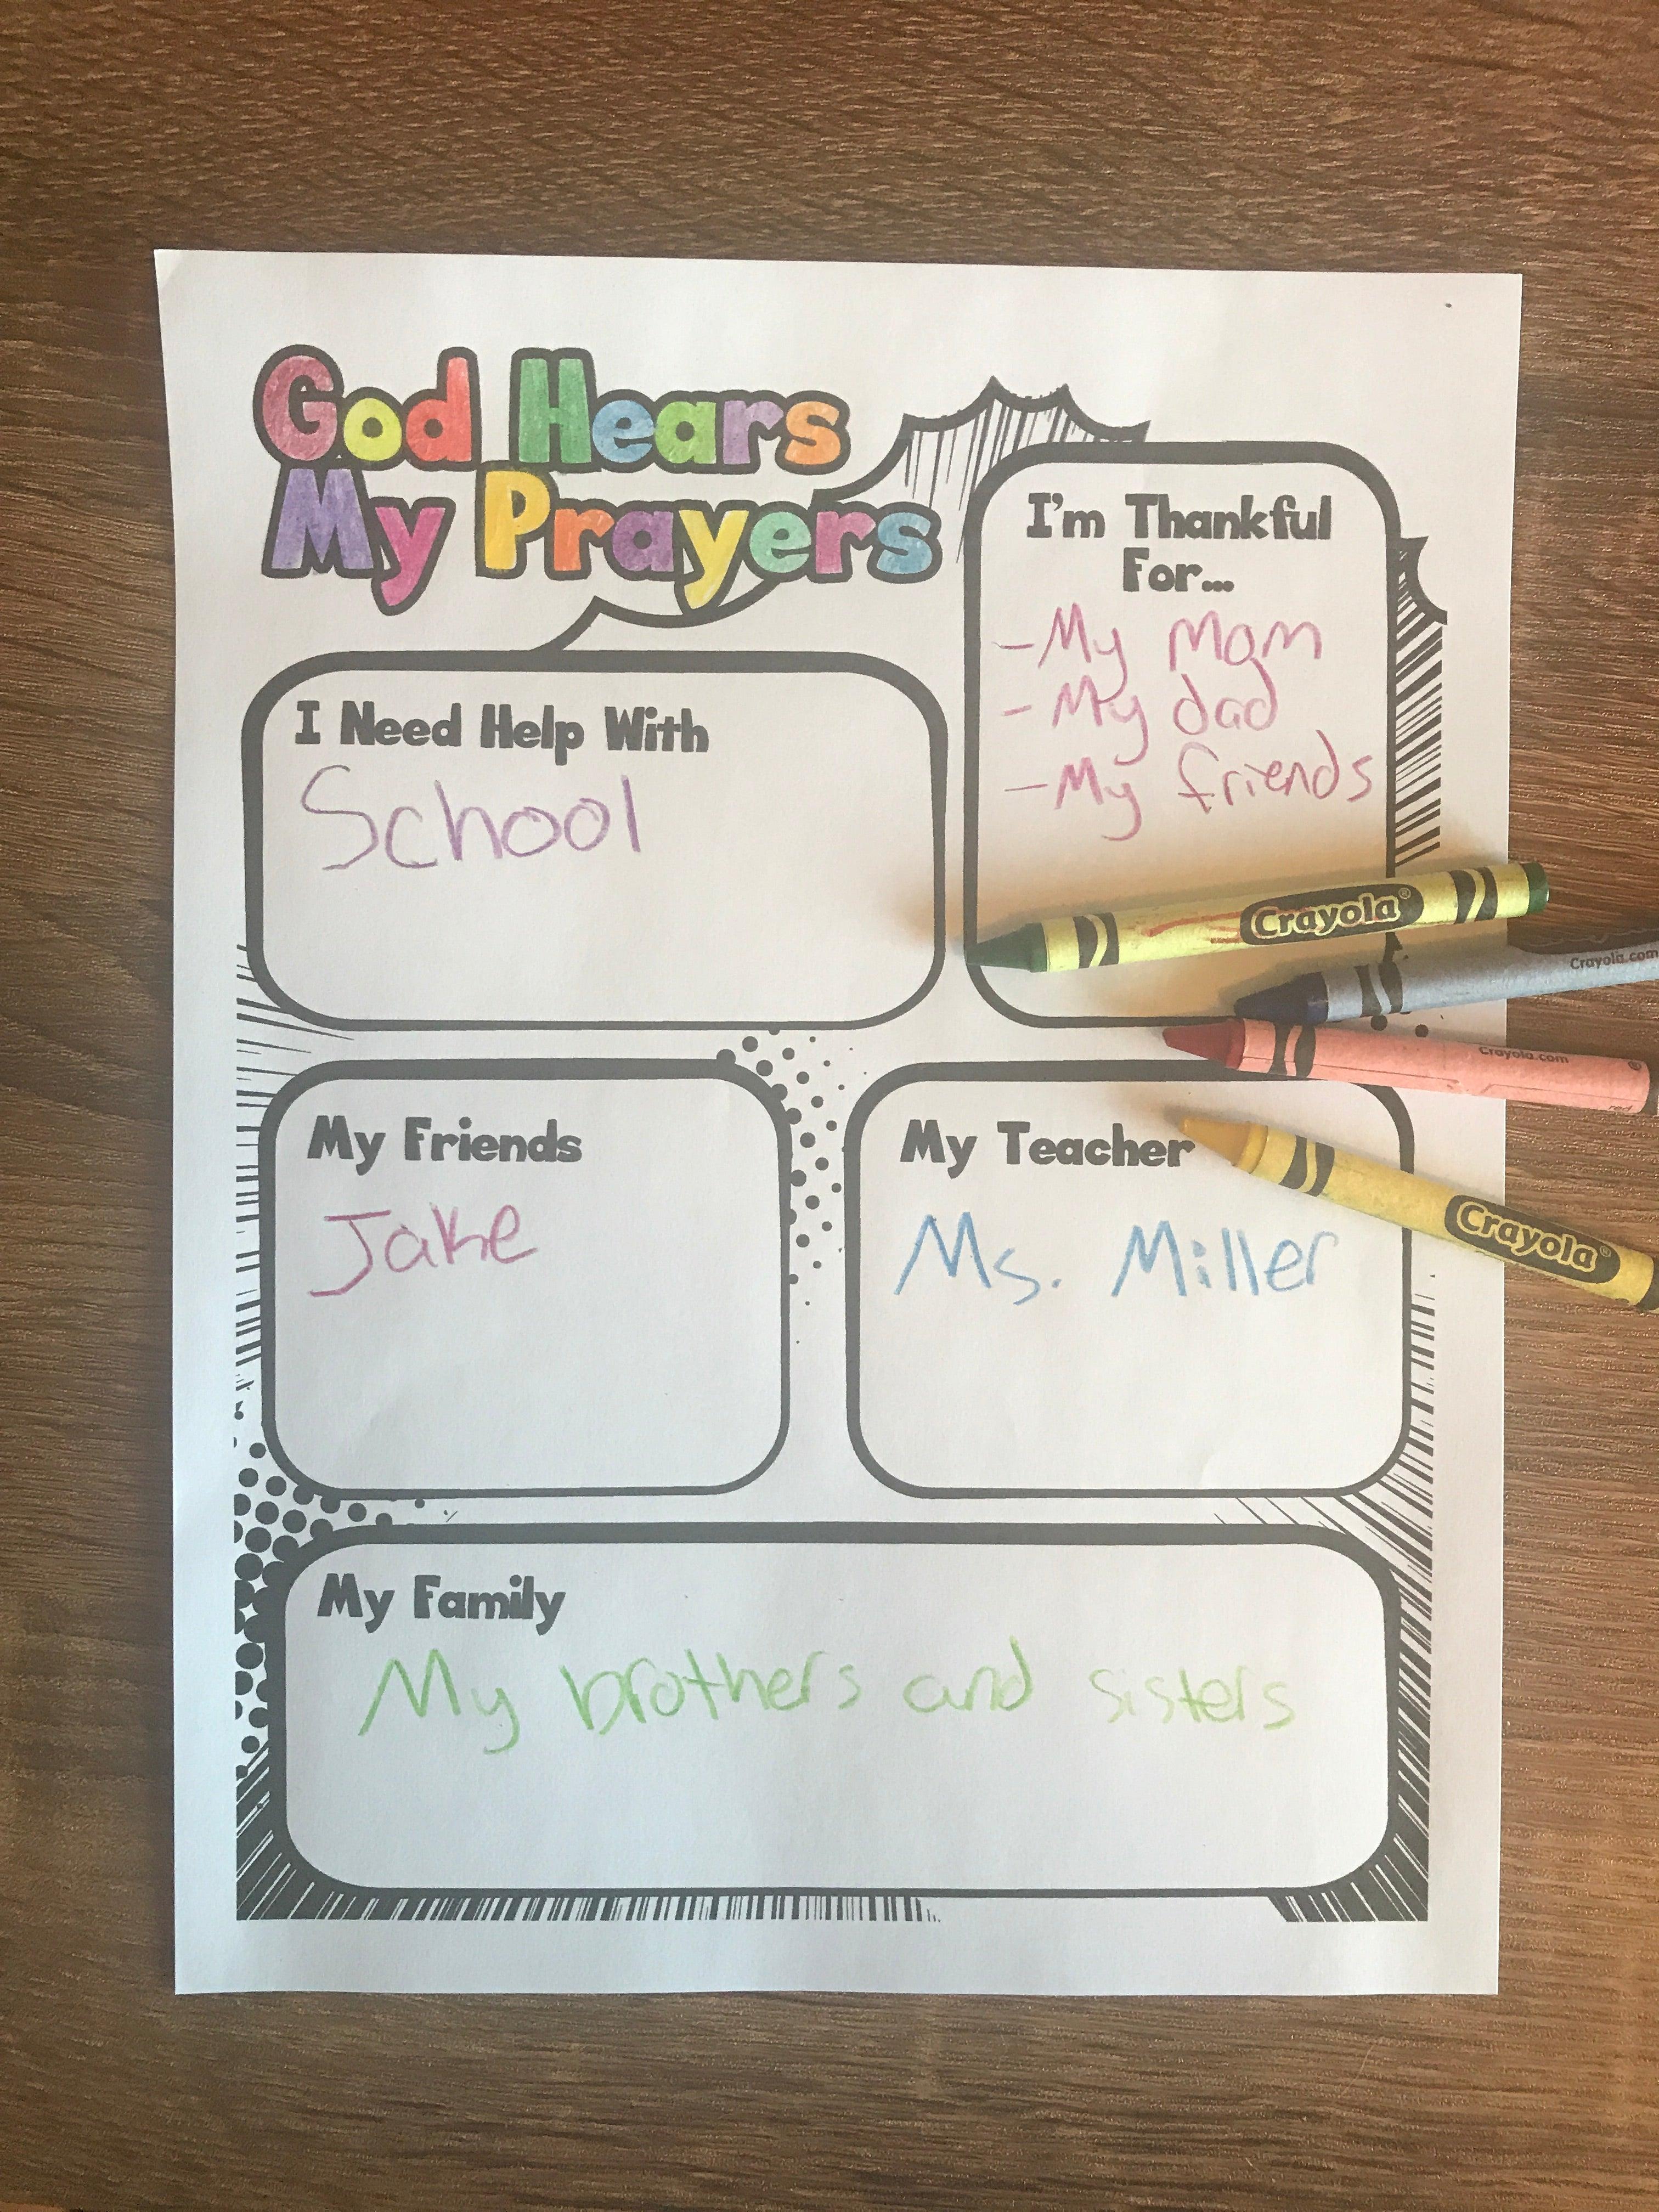 God Hears
My Prayers
I'm Thankful
For...
-My Mom
- My dad
-My friends
I Need Help With
School
Crayola®
Crayola.com
Crayola.com
My Friends
Jake
My Teacher
Ms. Miller
Crayola®
My Family
My brothers and sisters